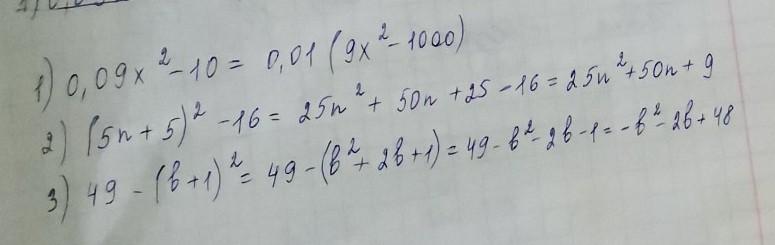 1) 0,09x² - 10 = 0,01 (9x² - 1000)
2) (5n + 5)² - 16 = 25n² + 50n + 25 - 16 = 25n² + 50n + 9
3) 49 - (в + 1)² = 49 - (в² + 2в + 1) = 49 - в² - 2в - 1 = -в² - 2в + 48